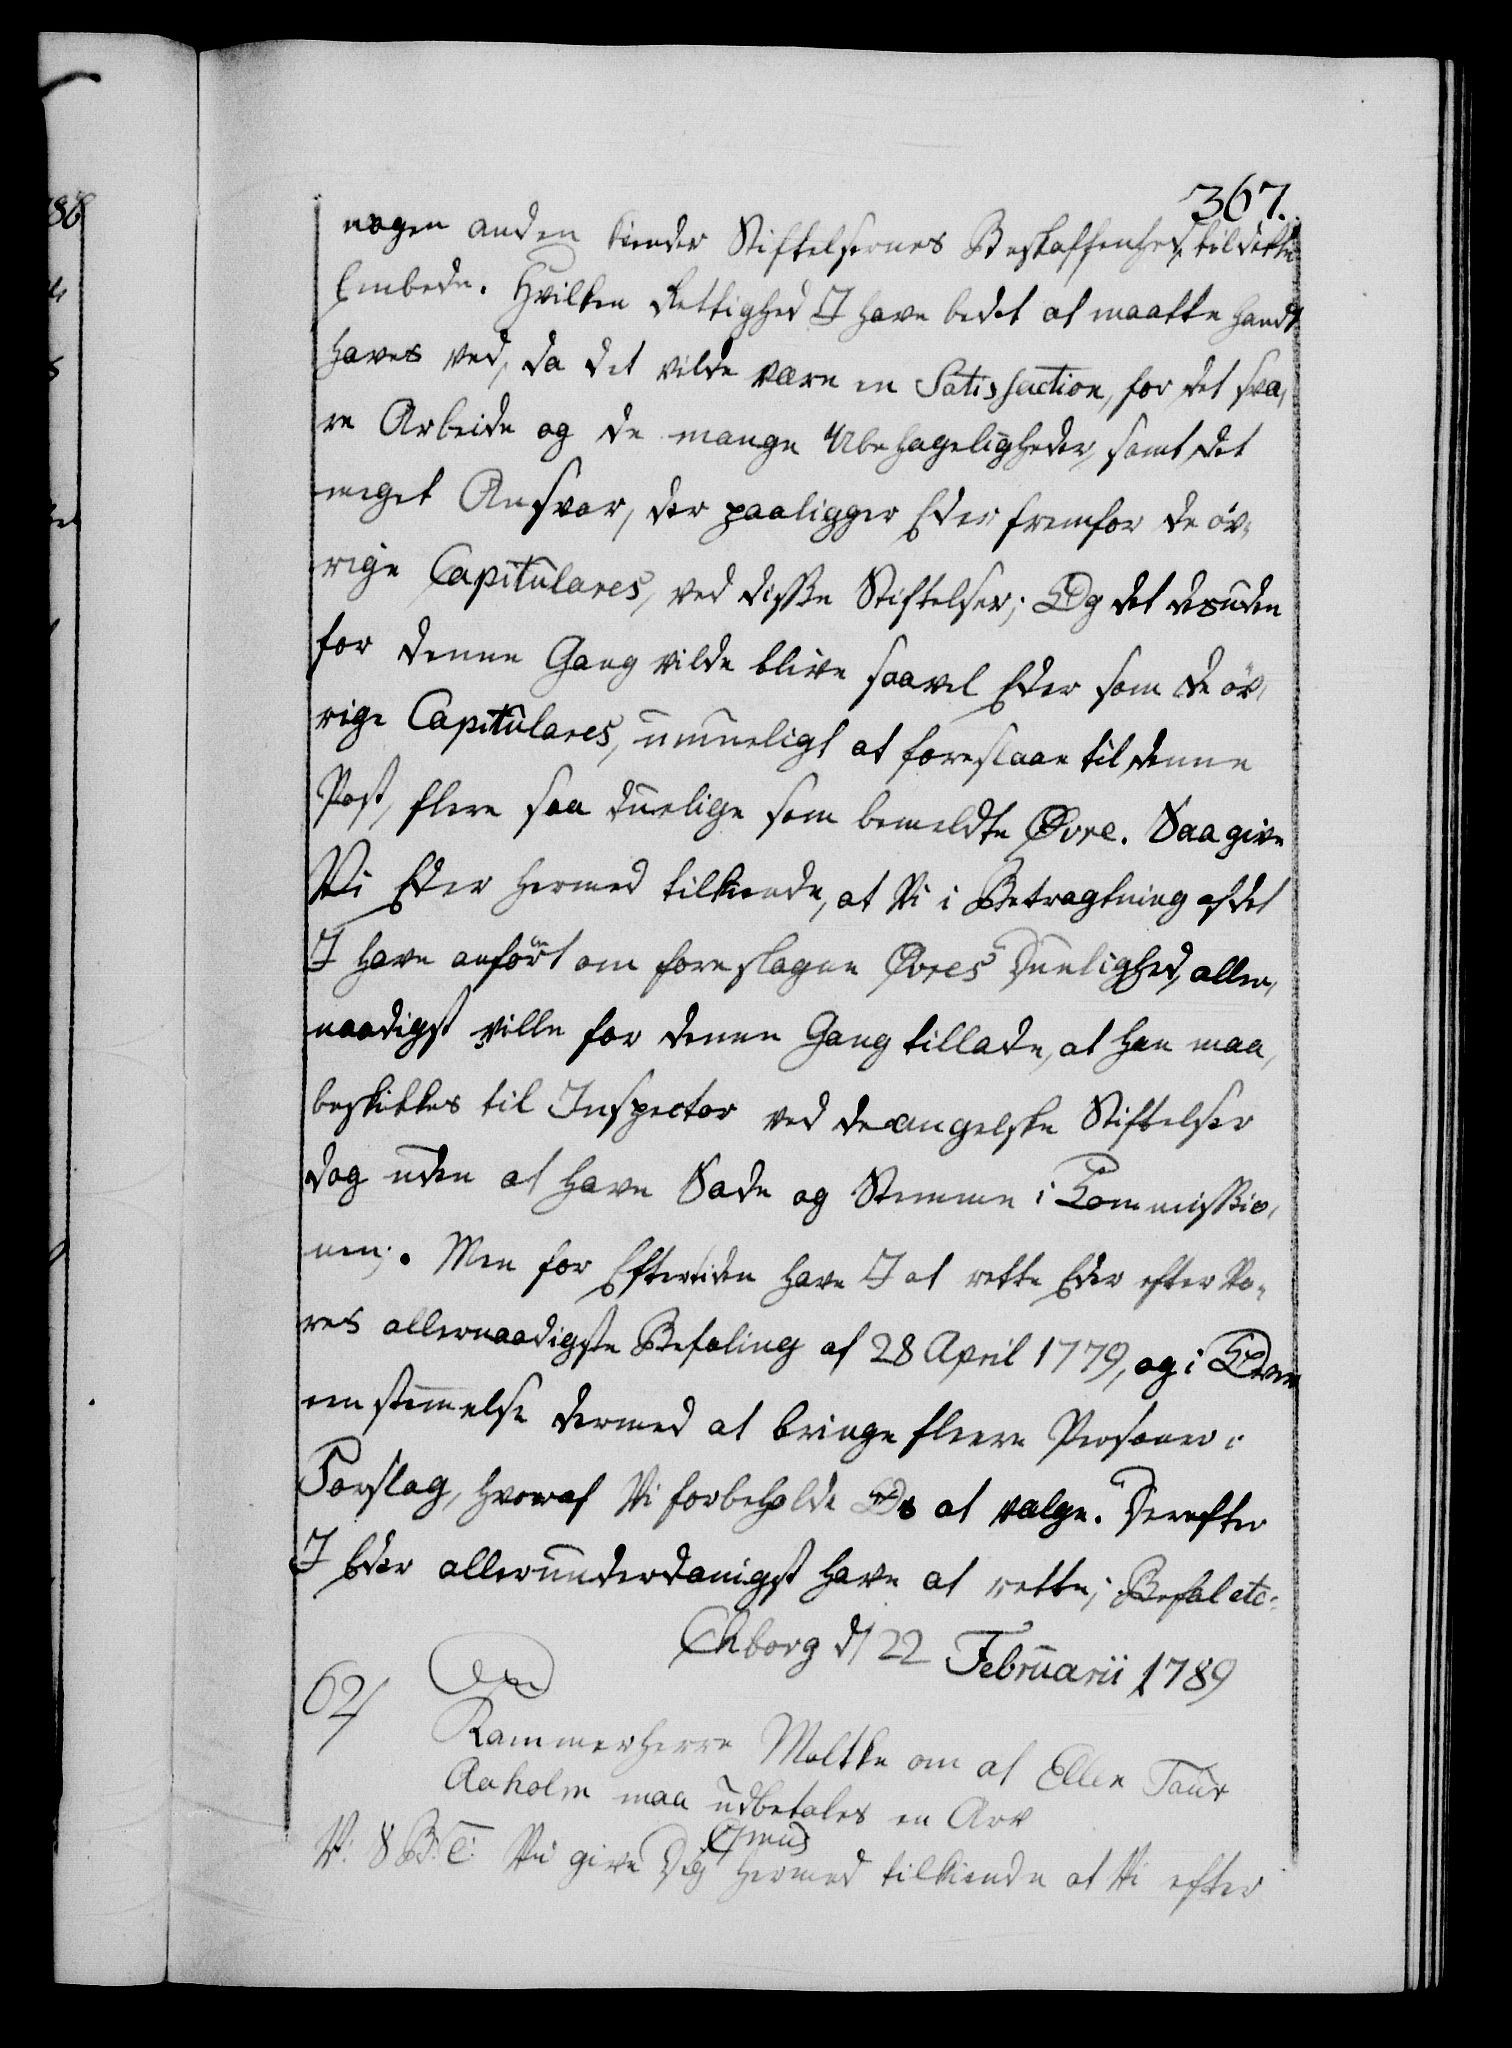 367.
nogen anden kiender Stiftelsernes Beskaffenhed, til dette
Embede. Hvilken Rettighed I have bedet at maatte hand¬
haves ved, da det vilde være en Satisfaction, for det sva¬
re Arbeide og de mange Ubehageligheder, samt det
meget Ansvar, der paaligger Eder fremfor de øv¬
rige Capitulares, ved disse Stiftelser; Og det desuden
for denne Gang vilde blive saavel Eder som de öv¬
rige Capitulares, umueligt at foreslaae til denne
Post, flere saa duelige som bemeldte Øvre. Saa give
Vi Eder hermed tilkiende, at Vi i Betragtning af det
I have anført om foreslagne Øvres Duelighed, aller¬
naadigst ville for denne Gang tillade, at han maa
beskikkes til Inspector ved de angelske Stiftelser
dog uden at have Sæde og Stemme i Commissio¬
nen;. Men for Eftertiden have I at rette Eder efter Vo¬
res allernaadigste Befaling af 28 April 1779, og i Over
eenstemmelse dermed at bringe fleere Personer i
Forslag, hvoraf Vi forbeholde Os at vælge. Derefter
I Eder allerunderdanigst have at rette; Befal etc:
Chborg d/ 22 Februarii 1789
62/
Kammerherre Moltke om at Ellen
Aaholm maa udbetales en Arv
V: 8 B: C: Vii give Dig hermed tilkiende at Vi efter